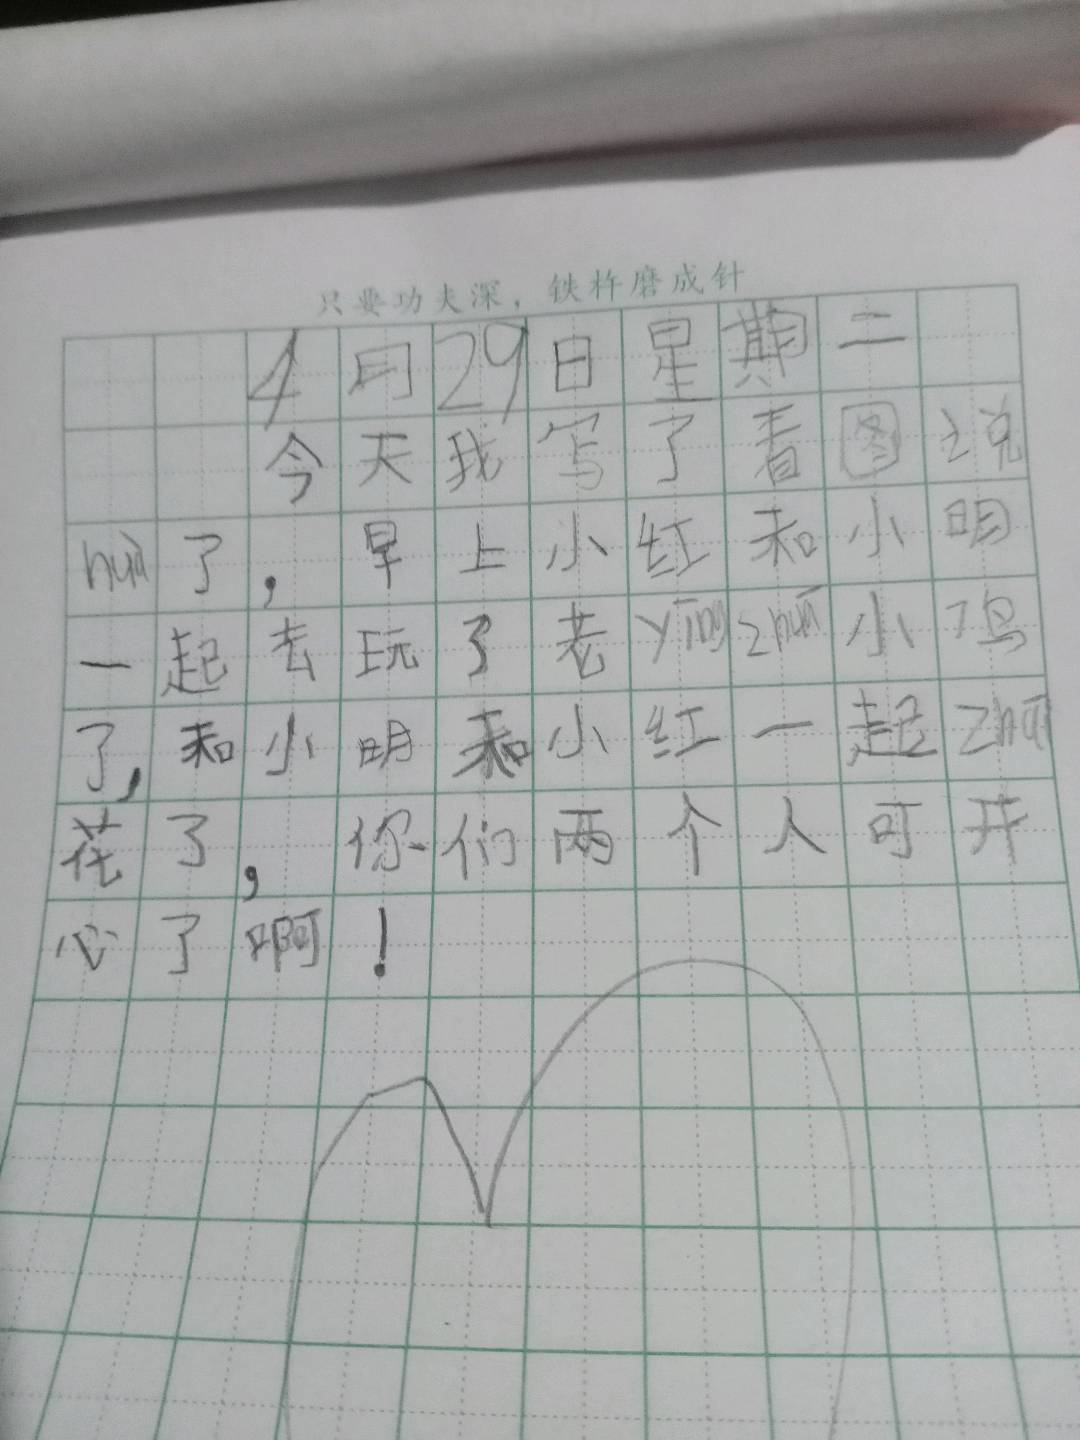 只要功夫深，铁杵磨成针
4月29日星期二
今天我写了看图说
huà了，早上小红和小明
一起去玩了老yīngzhuō小鸡
了，和小明和小红一起zhāi
花了，你们两个人可开
心了啊！